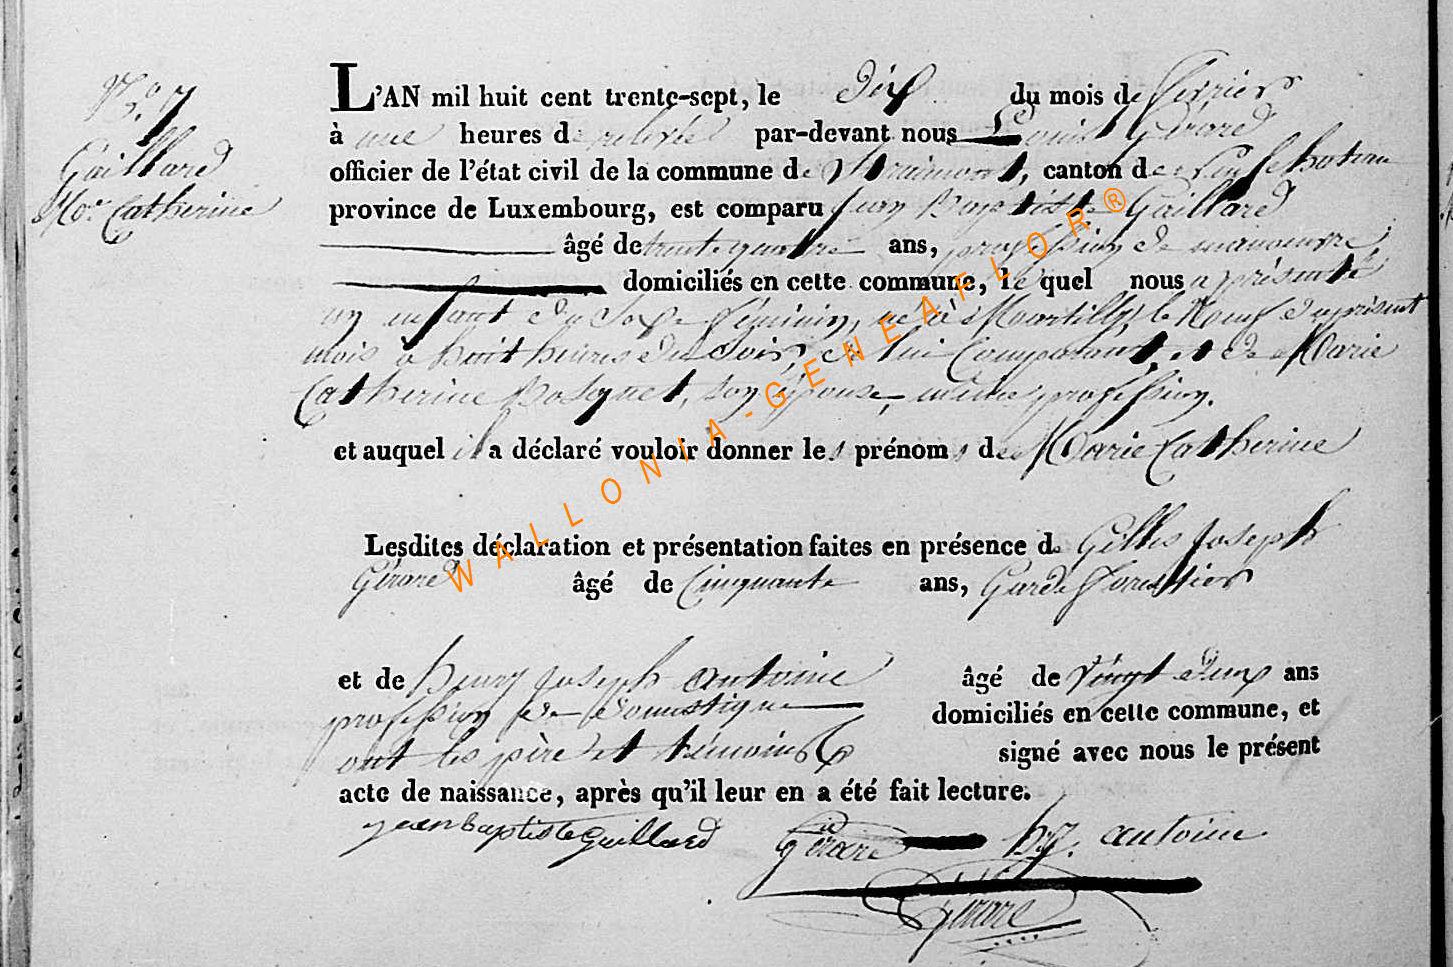 N.° 7
Gaillard
M.ie Catherine
L'AN mil huit cent trente-sept, le Dix du mois de Février
à une heures de relevée par-devant nous Louis Gérard
officier de l'état civil de la commune de Straimont, canton de Neufchateau
province de Luxembourg, est comparu Jean Baptiste Gaillard
âgé de trente quatre ans, profession de manoeuvre
domiciliés en cette commune, lequel nous a présenté
un enfant du Sexe féminin, né à Martilly le Neuf du présent
mois à huit heures du soir, de lui Comparant, et de Marie
Catherine Bosquet, son épouse, même profession.
et auquel il a déclaré vouloir donner les prénoms de Marie Catherine
Lesdites déclaration et présentation faites en présence de Gilles Joseph
Gérard âgé de Cinquante ans, Garde Forestier
et de henry joseph antoine âgé de vingt deux ans
profession de domestique domiciliés en cette commune, et
ont les père et témoins signé avec nous le présent
acte de naissance, après qu'il leur en a été fait lecture.
jean baptiste gaillard Gérard hJ. antoine
Gérard
WALLONIA-GENEAFLOR®